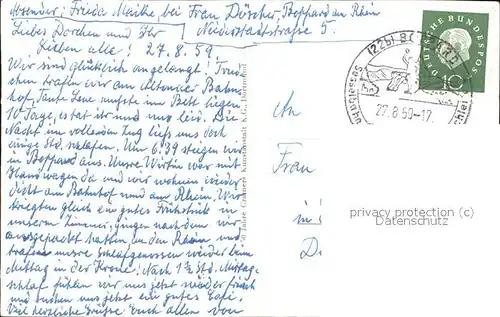 Absender: Frieda Mathe bei Frau Döscher, Boppard am Rhein
Niederstadtstraße 5.
Liebes Dorchen und Ihr
Lieben alle! 27.8.59
Wir sind glücklich angelangt!
trafen wir am Altonaer Bahn-
hof, Tante Lene mußte im Bett liegen
10 Tage, es tat ihr und uns leid. Die
Nacht im vollen Zug ließ uns doch
einige Std. schlafen. Um 6.39 stiegen wir
in Boppard aus. Unsre Wirtin war mit
Handwagen da und wir wohnen wieder
dicht am Bahnhof und am Rhein. Wir
kriegten gleich ein gutes Frühstück in
unserem Zimmer, gingen nachdem wir
ausgepackt hatten an den Rhein und
trafen unsre Schlafgenossen wieder beim
Mittag in der Krone. Nach 1½ Std. Mittag-
schlaf fühlen wir uns jetzt wieder frisch
und suchen uns jetzt ein gutes Café.
Viel herzliche Grüße Euch allen von
DEUTSCHE BUNDESPOST
10
(22b) BOPPARD
27.8.59-17
An
Frau
privacy protection (c)
Datenschutz.